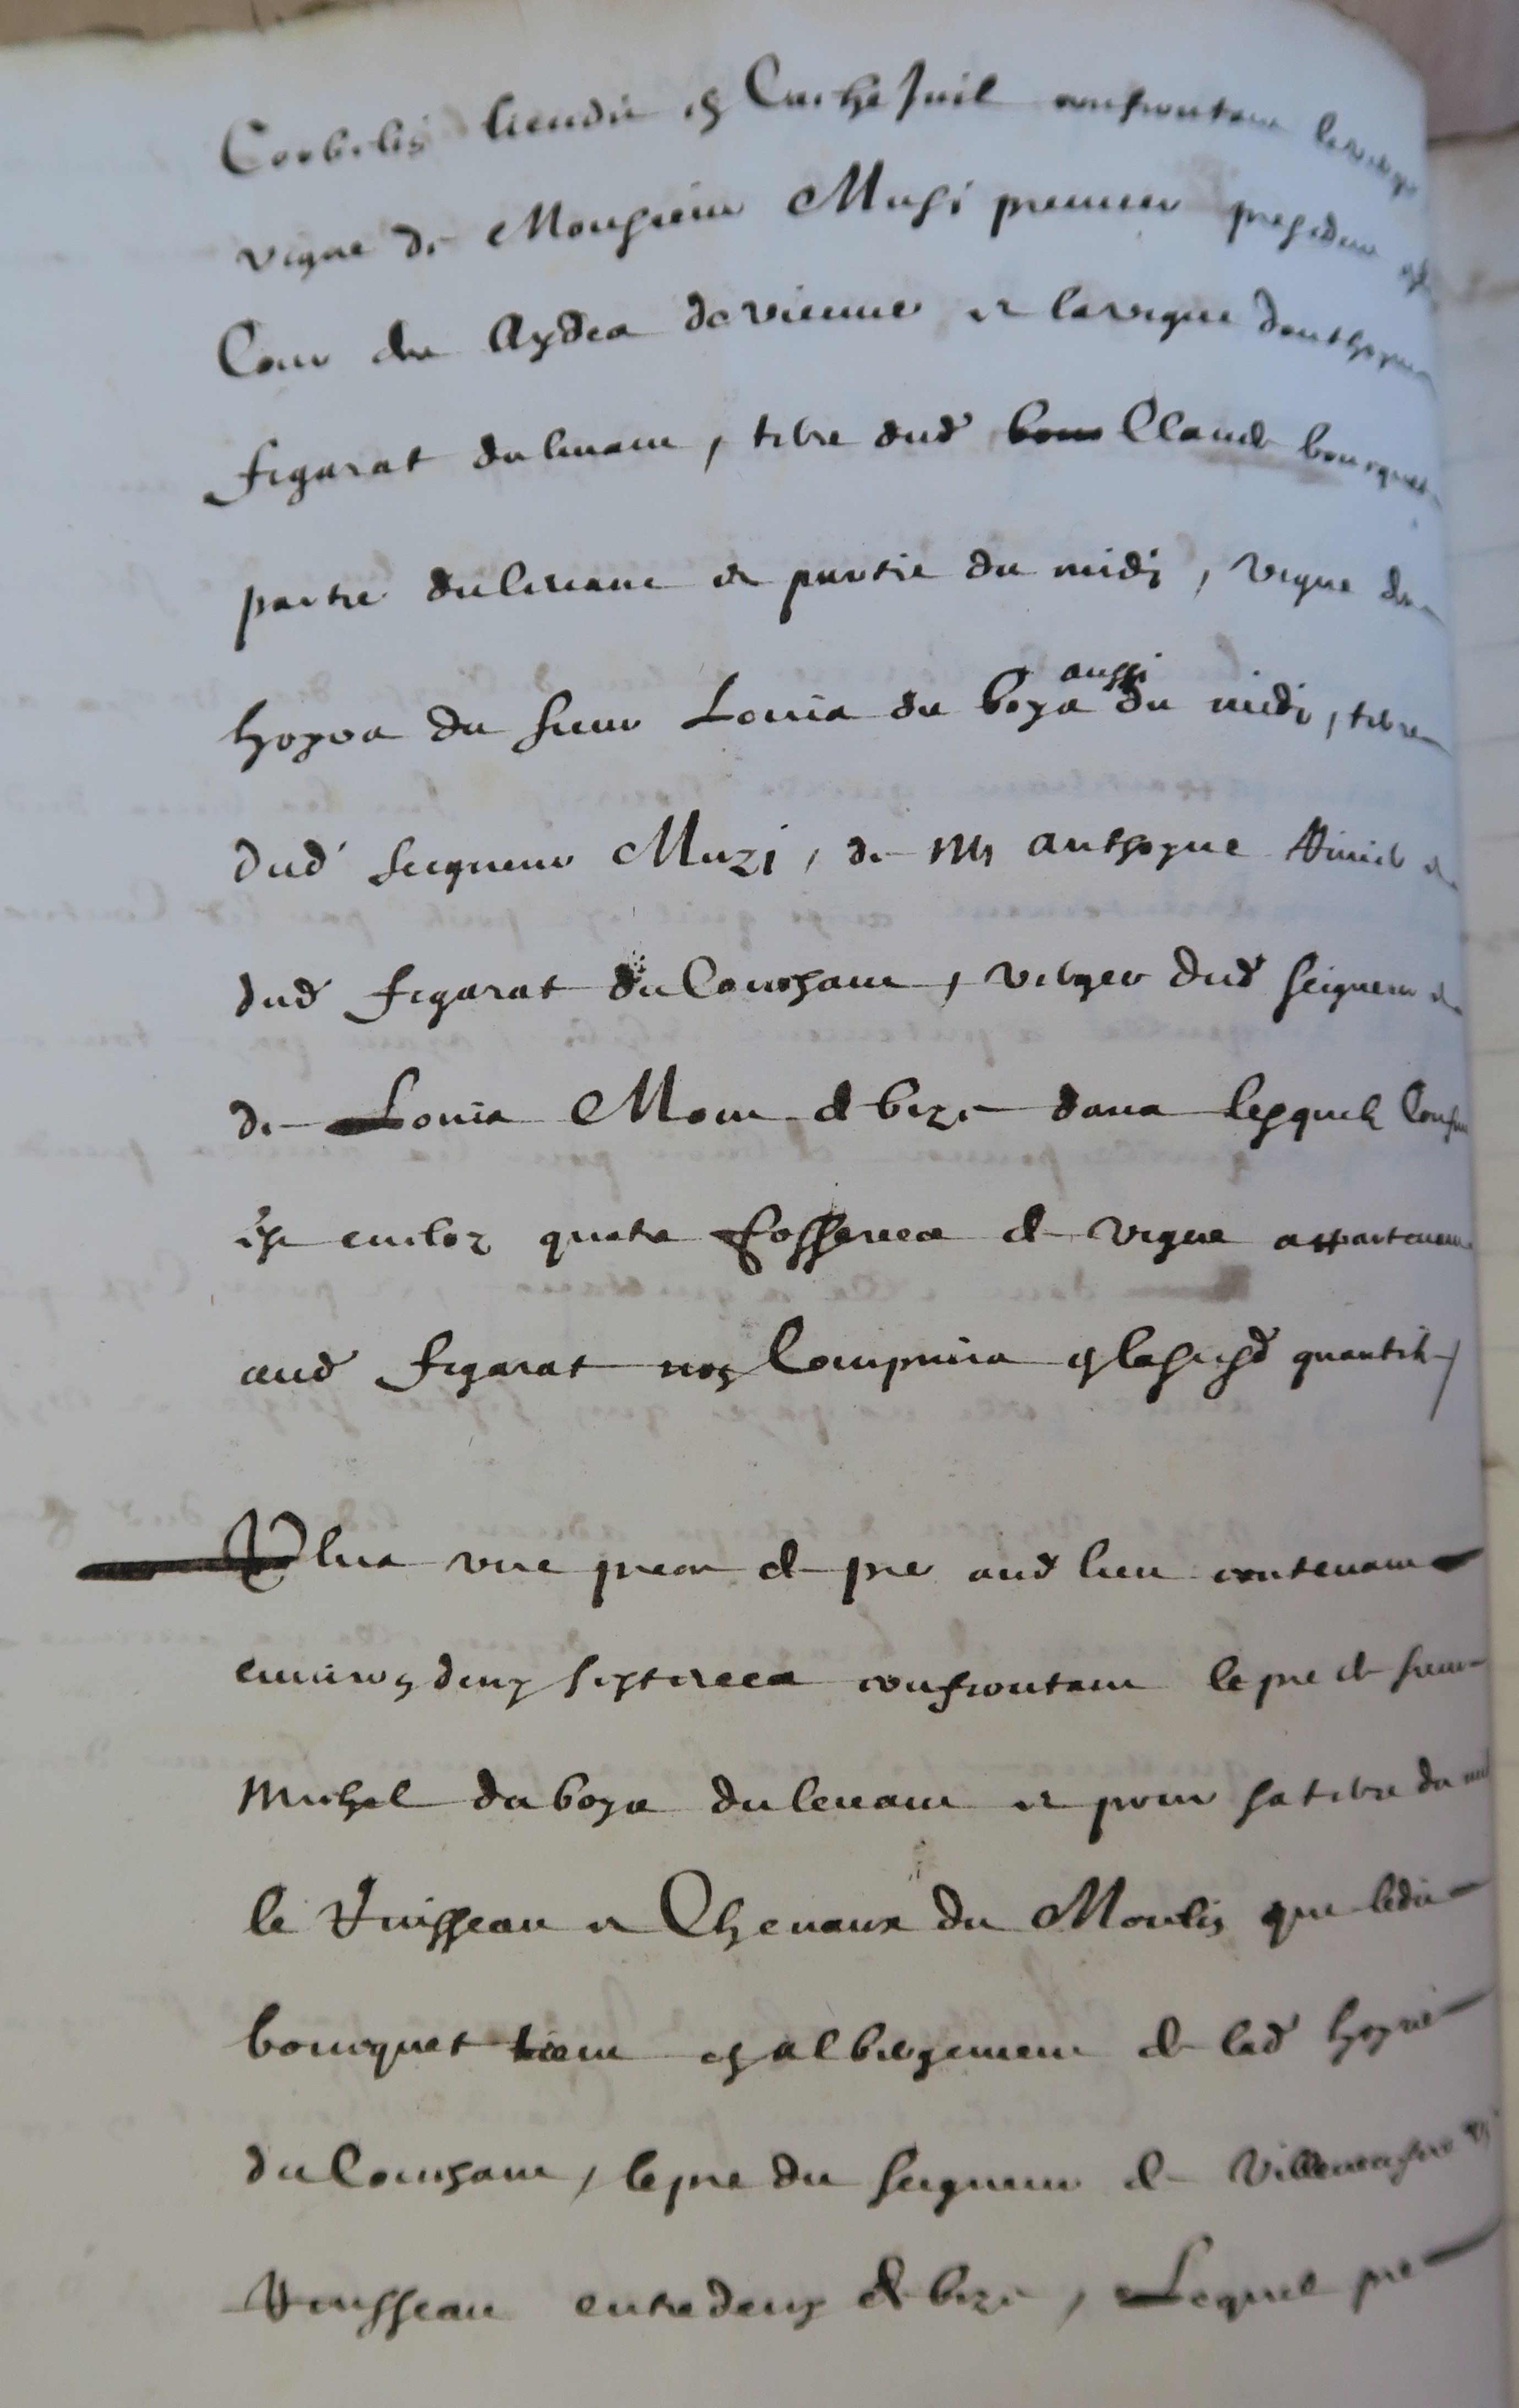 Corbelin lieudit en Cuchefuil confrontant
vigne de Monsieur Musi premier president
Cour des Aydes de vienne et la vigne
figarat du levant, terre dud Claude bourquet
partie du levant et partie du midy, vigne des
hoyrs du sieur Louis du boys aussi du midi, terre
dud seigneur Muzi, de Mr anthoyne et
dud figarat du Couchant, verger dud seigneur et
de Louis de bize dans lesquels
est enclos quatre fosserees de vigne appartenant
aud figarat non Comprins en la susd quantité
Plus une piece de pre aud lieu contenant
environ deux sesterees confrontant le pre de sieur
Michel du boys du levant et pour sa terre du
le Ruisseau et Chenaux du Moulin que ledit
bourquet tient en albergement de lad hoyrie
du Couchant, le pre du seigneur de
Ruisseau entredeux de bize, Lequel pre